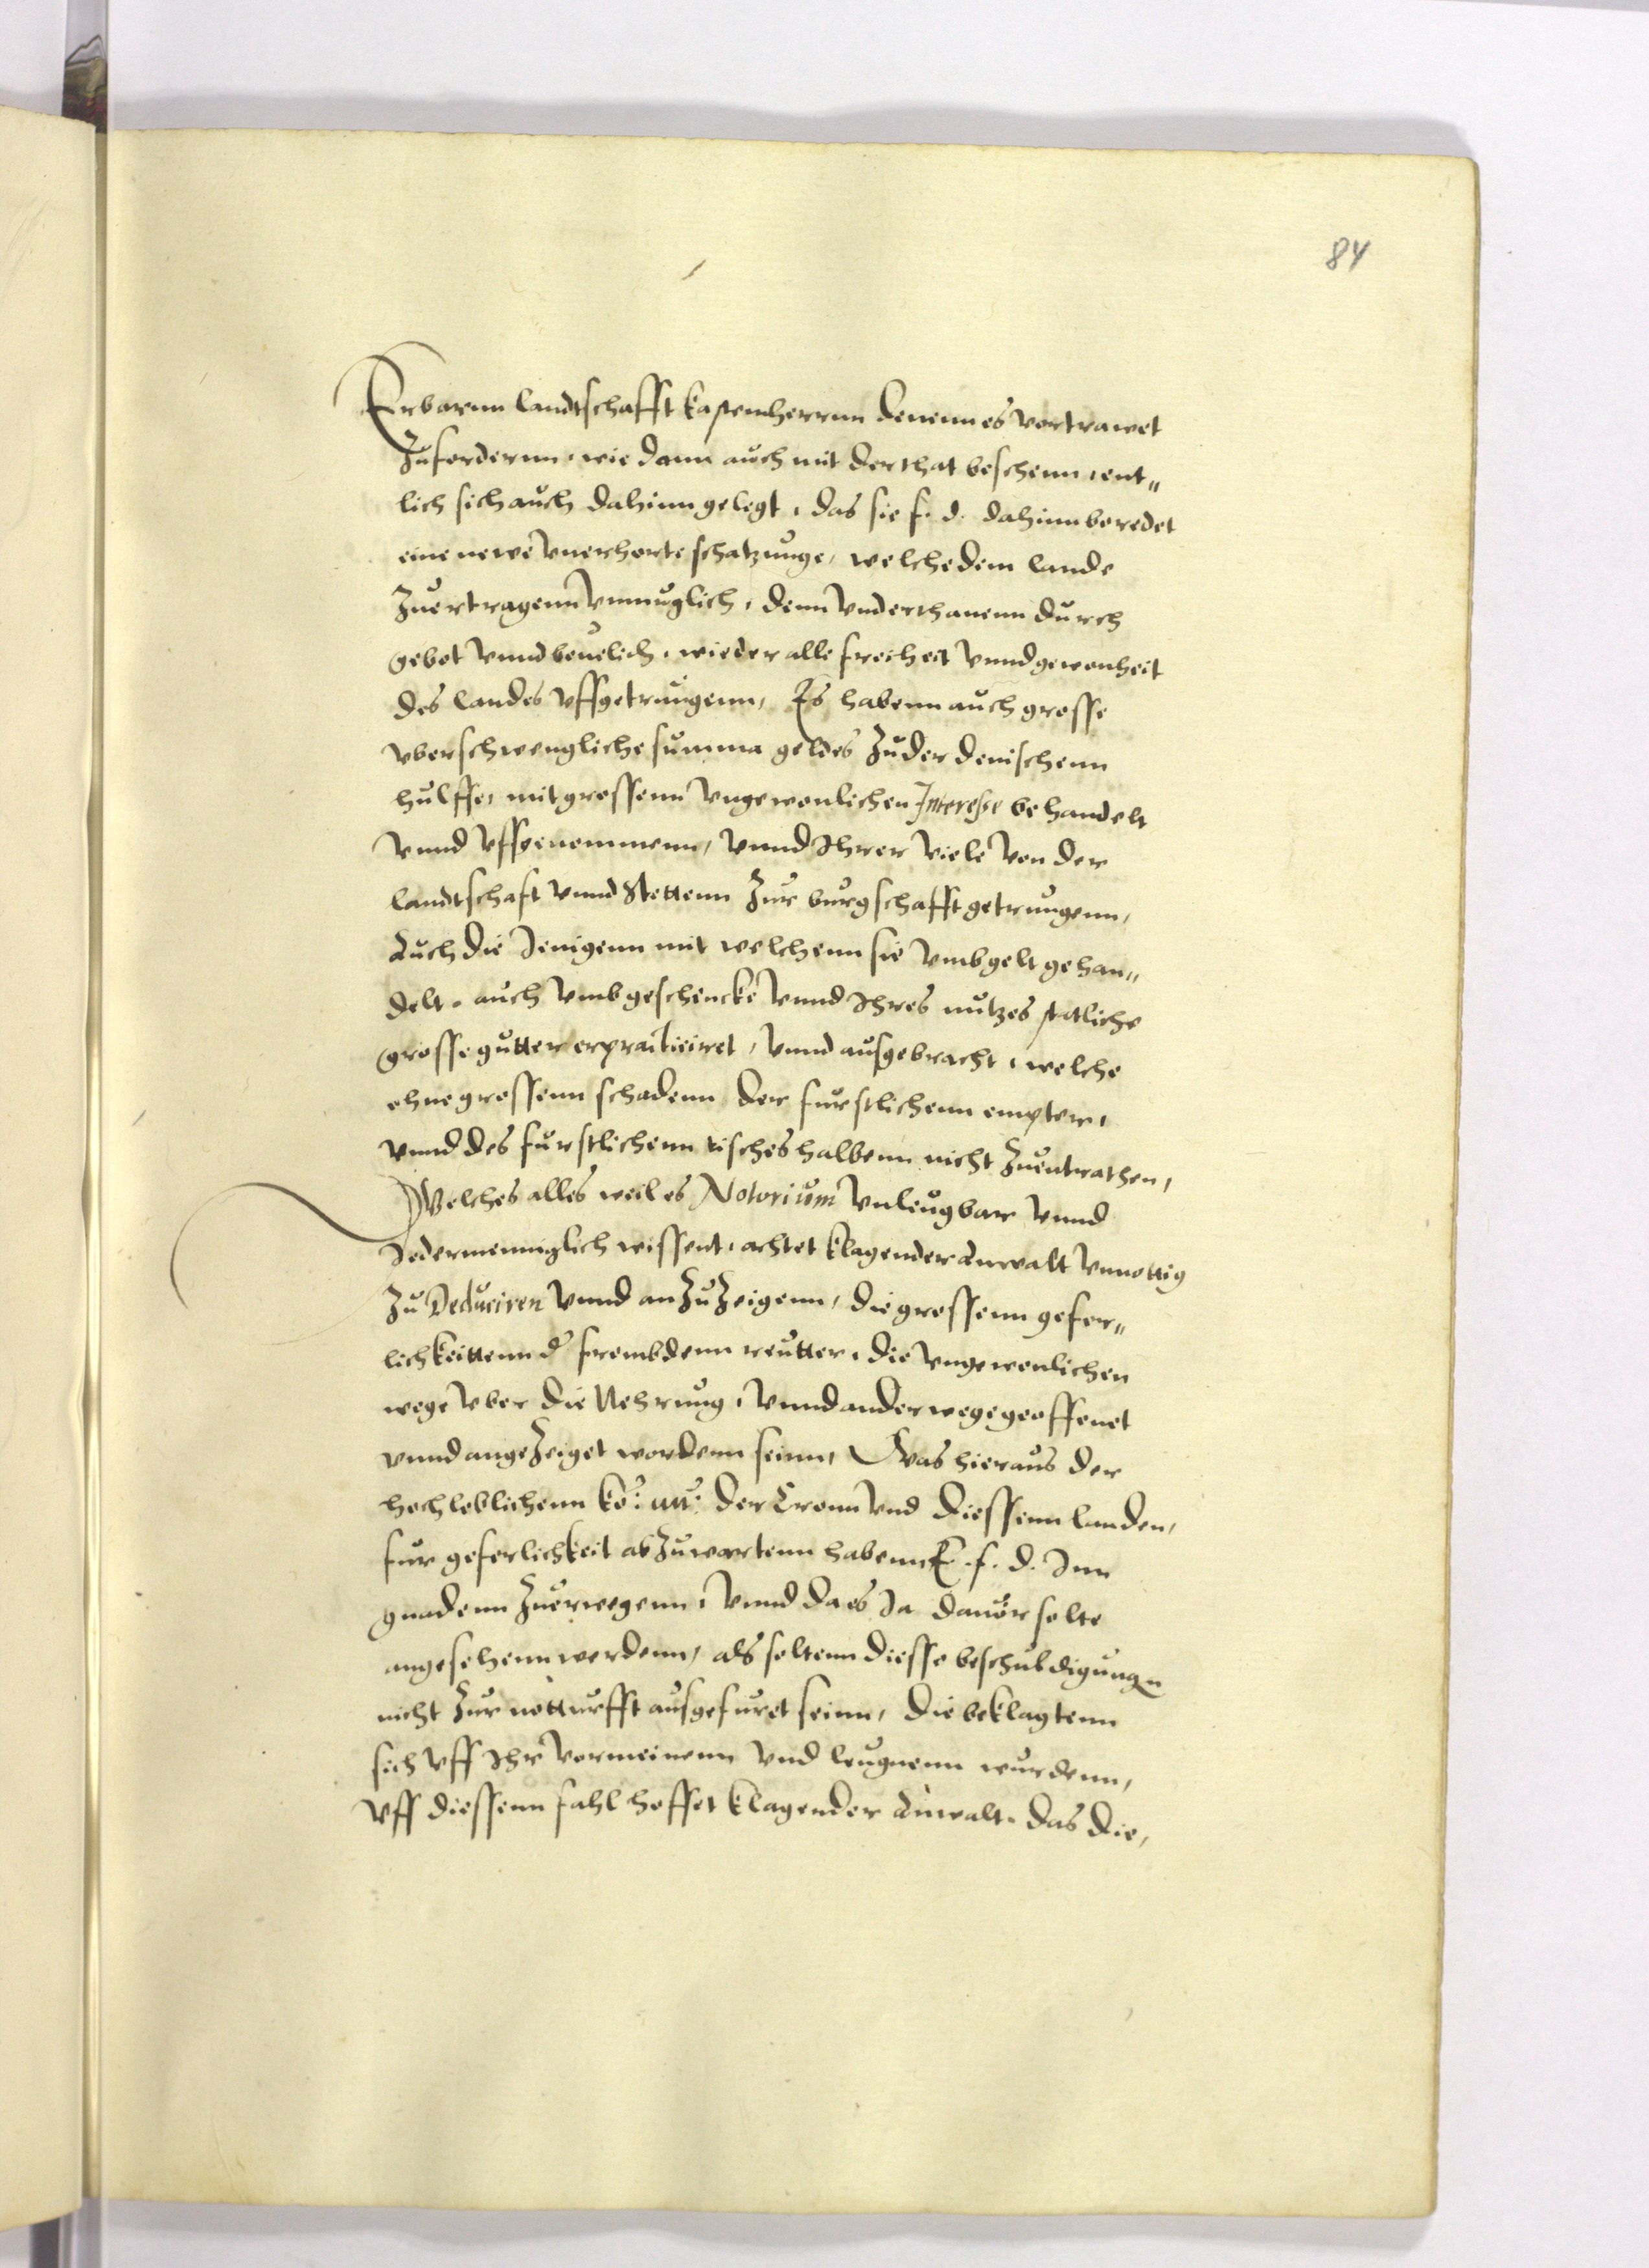 84
Erbarnn landtschafft kastennherrnn denenn es vortrawet
Zufordernn, wie dann auch mit der that beschenn, ent„
lich sich auch dahinn gelegt, das sie f. d. dahinn beredet
eine newe vnerhorte schatzunge, welche dem lande
Zuertragenn vnmuglich, denn vnderthanenn durch
gebot vnnd beuelich, wieder alle freiheit vnnd gewonheit
des landes vffgetrungenn, Es habenn auch grosse
vberschwengliche summa geldes Zu der denischenn
hulffe, mit grossenn vngewonlichen Interesse behandelt
vnnd vffgenommenn, vnnd Ihrer viele von der
landtschaft vnnd Stettenn Zur burgschafft getrungenn,
Auch die Jenigenn mit welchenn sie vmb gelt gehan„
delt, auch vmb geschencke vnnd Ihres nutzes statliche
grosse gutter erpracticiret, vnnd ausgebracht, welche
ohne grossenn schadenn der furstlichenn empter,
vnnd des furstlichenn tisches halbenn nicht Zuentrathen,
Welches alles weil es Notorium vnleugbar vnnd
Jedermenniglich wissent, achtet klagender Anwalt vnnottig
Zu Deduciren vnnd anZuZeigenn, die grossenn gefer„
lichkeittenn d frembdenn reutter, die vngewonlichen
wege vber die Nehrung, vnnd ander wege geoffenet
vnnd angeZeiget wordenn seinn, Was hieraus der
hochloblichenn ko: Mt: der Cronn vnd diessenn landen,
fur geferlichkeit abZuwartenn habenn E. f. d. Inn
gnadenn Zuerwegenn, vnnd da es Ja dauor solte
angesehenn werdenn, als soltenn diesse beschuldigungn
nicht Zur notturfft ausgefuret seinn, die beklagtenn
sich vff Ihr vormeinenn vnd leugnenn wurdenn,
vff diessenn fahl hoffet klagender Anwalt, das die,